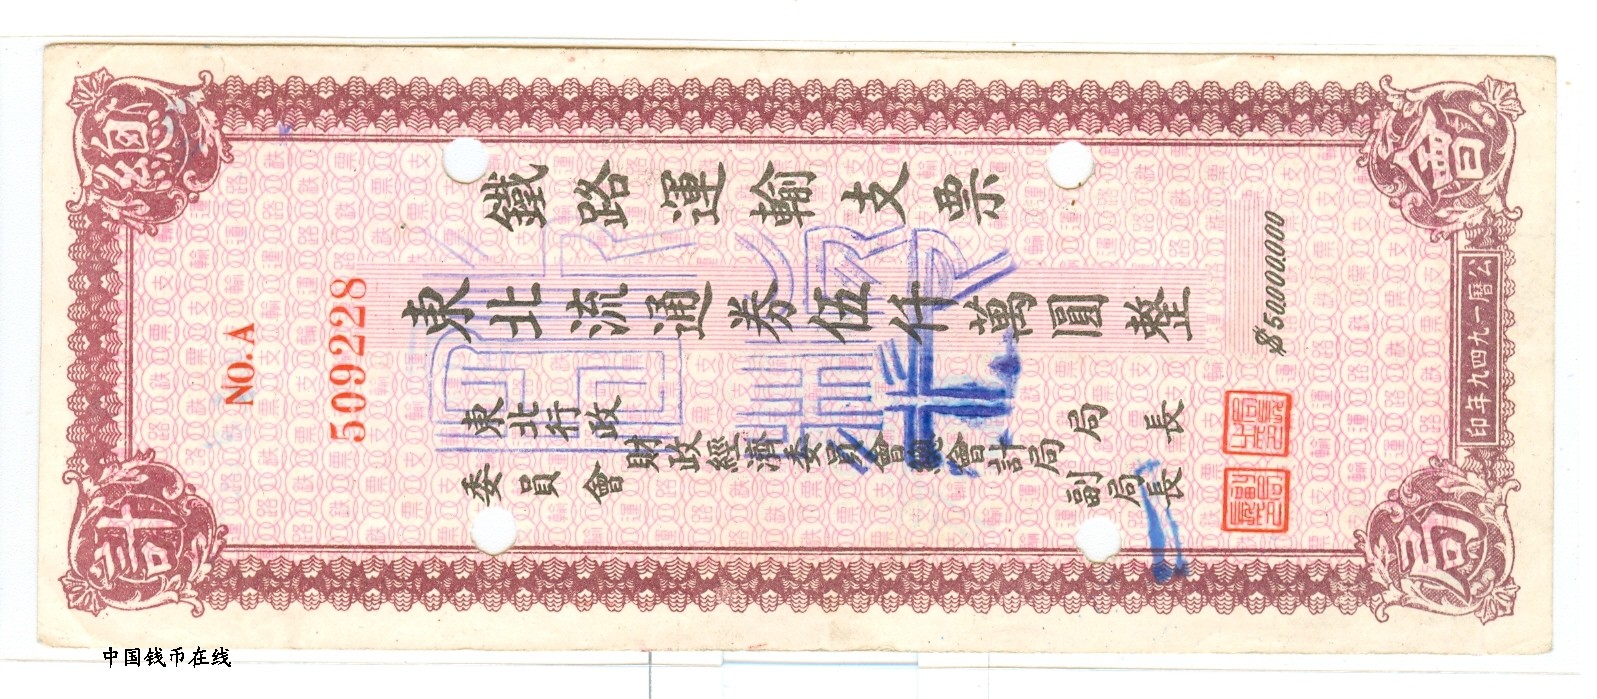 總 會
計 局
鐵路運輸支票
東北流通券伍仟萬圓整
$50,000,000.00
NO. A
5092228
東北行政
委員會
財政經濟委員會總會計局
局長
副局長
公曆一九四九年印
中国钱币在线